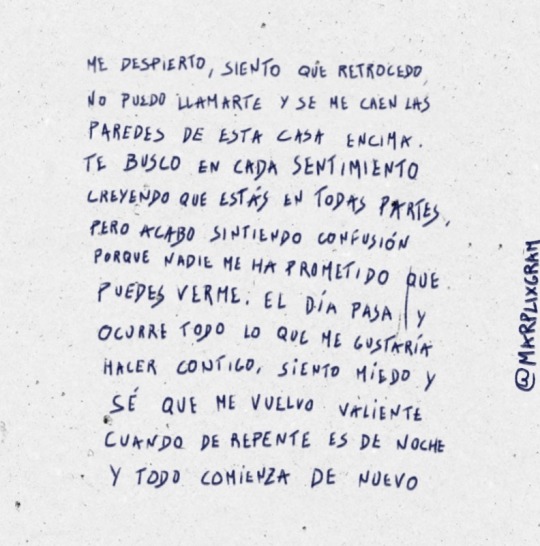 ME DESPIERTO, SIENTO QUE RETROCEDO,
NO PUEDO LLAMARTE Y SE ME CAEN LAS
PAREDES DE ESTA CASA ENCIMA.
TE BUSCO EN CADA SENTIMIENTO
CREYENDO QUE ESTÁS EN TODAS PARTES,
PERO ACABO SINTIENDO CONFUSIÓN
PORQUE NADIE ME HA PROMETIDO QUE
PUEDES VERME. EL DÍA PASA Y
OCURRE TODO LO QUE ME GUSTARÍA
HACER CONTIGO, SIENTO MIEDO Y
SÉ QUE ME VUELVO VALIENTE
CUANDO DE REPENTE ES DE NOCHE
Y TODO COMIENZA DE NUEVO
@MARPLIXGRAM